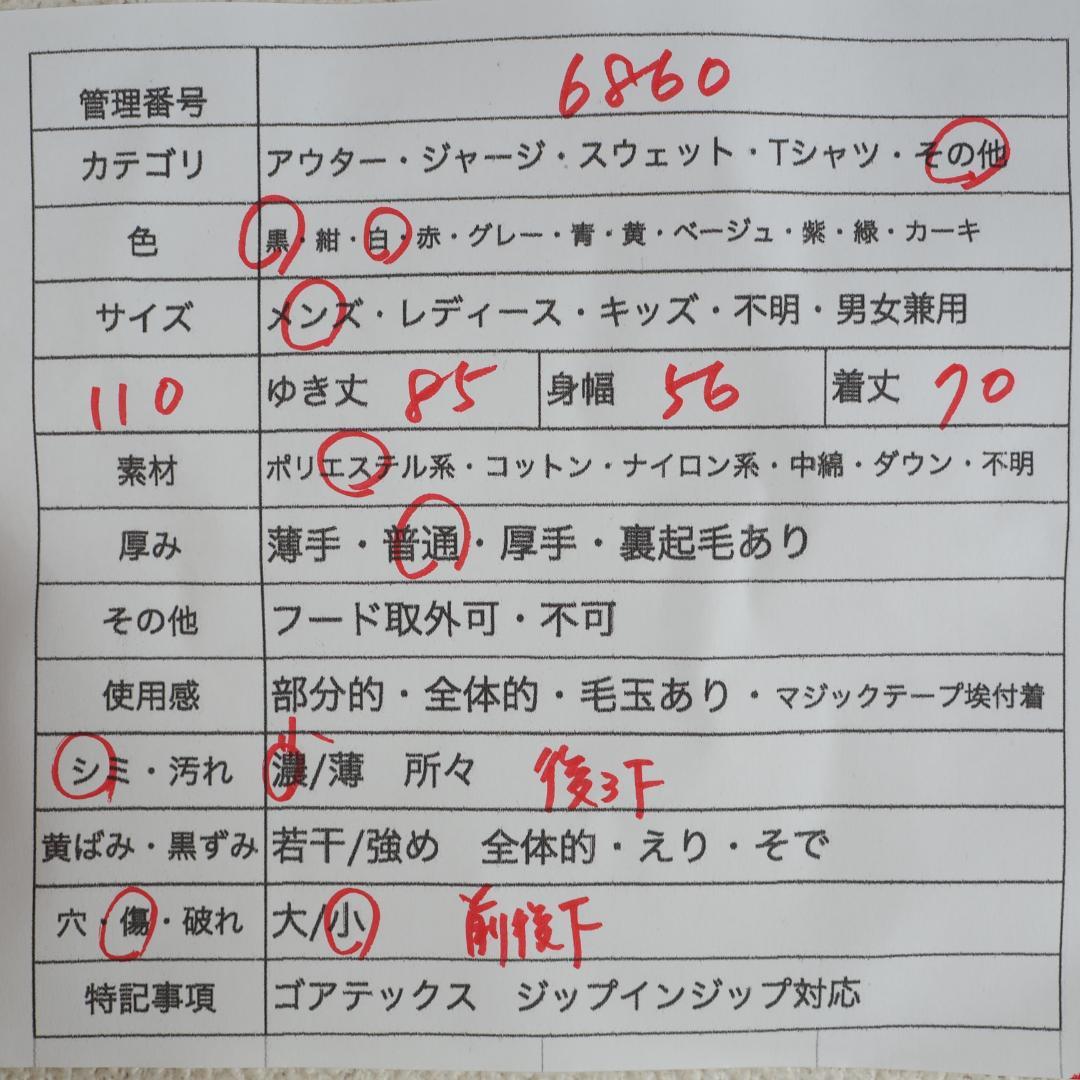 管理番号 6860
カテゴリ アウター・ジャージ・スウェット・Tシャツ・その他
色 黒・紺・白・赤・グレー・青・黄・ベージュ・紫・緑・カーキ
サイズ メンズ・レディース・キッズ・不明・男女兼用
110 ゆき丈 85 身幅 56 着丈 70
素材 ポリエステル系・コットン・ナイロン系・中綿・ダウン・不明
厚み 薄手・普通・厚手・裏起毛あり
その他 フード取外可・不可
使用感 部分的・全体的・毛玉あり・マジックテープ埃付着
シミ・汚れ 濃/薄 所々 後ろ下
黄ばみ・黒ずみ 若干/強め 全体的・えり・そで
穴・傷・破れ 大/小 前後下
特記事項 ゴアテックス ジップインジップ対応